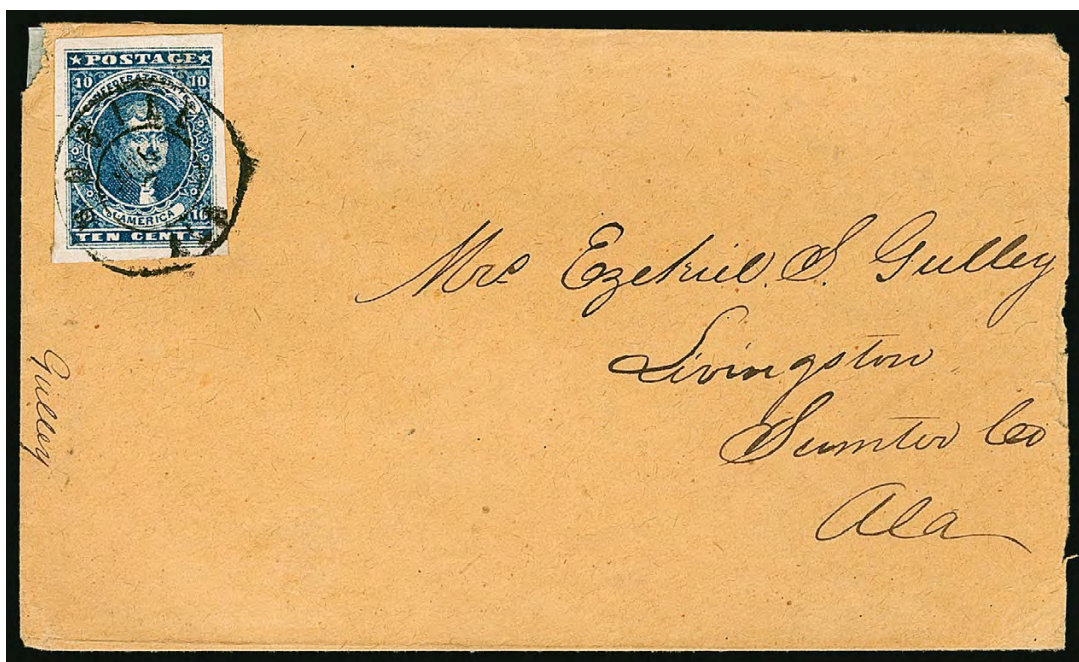 ★POSTAGE★
10 10
CONFEDERATE STATES
OF AMERICA
10
TEN CENTS
Mrs Ezekiel. S. Gulley
Livingston
Sumter Co
Ala
Gulley